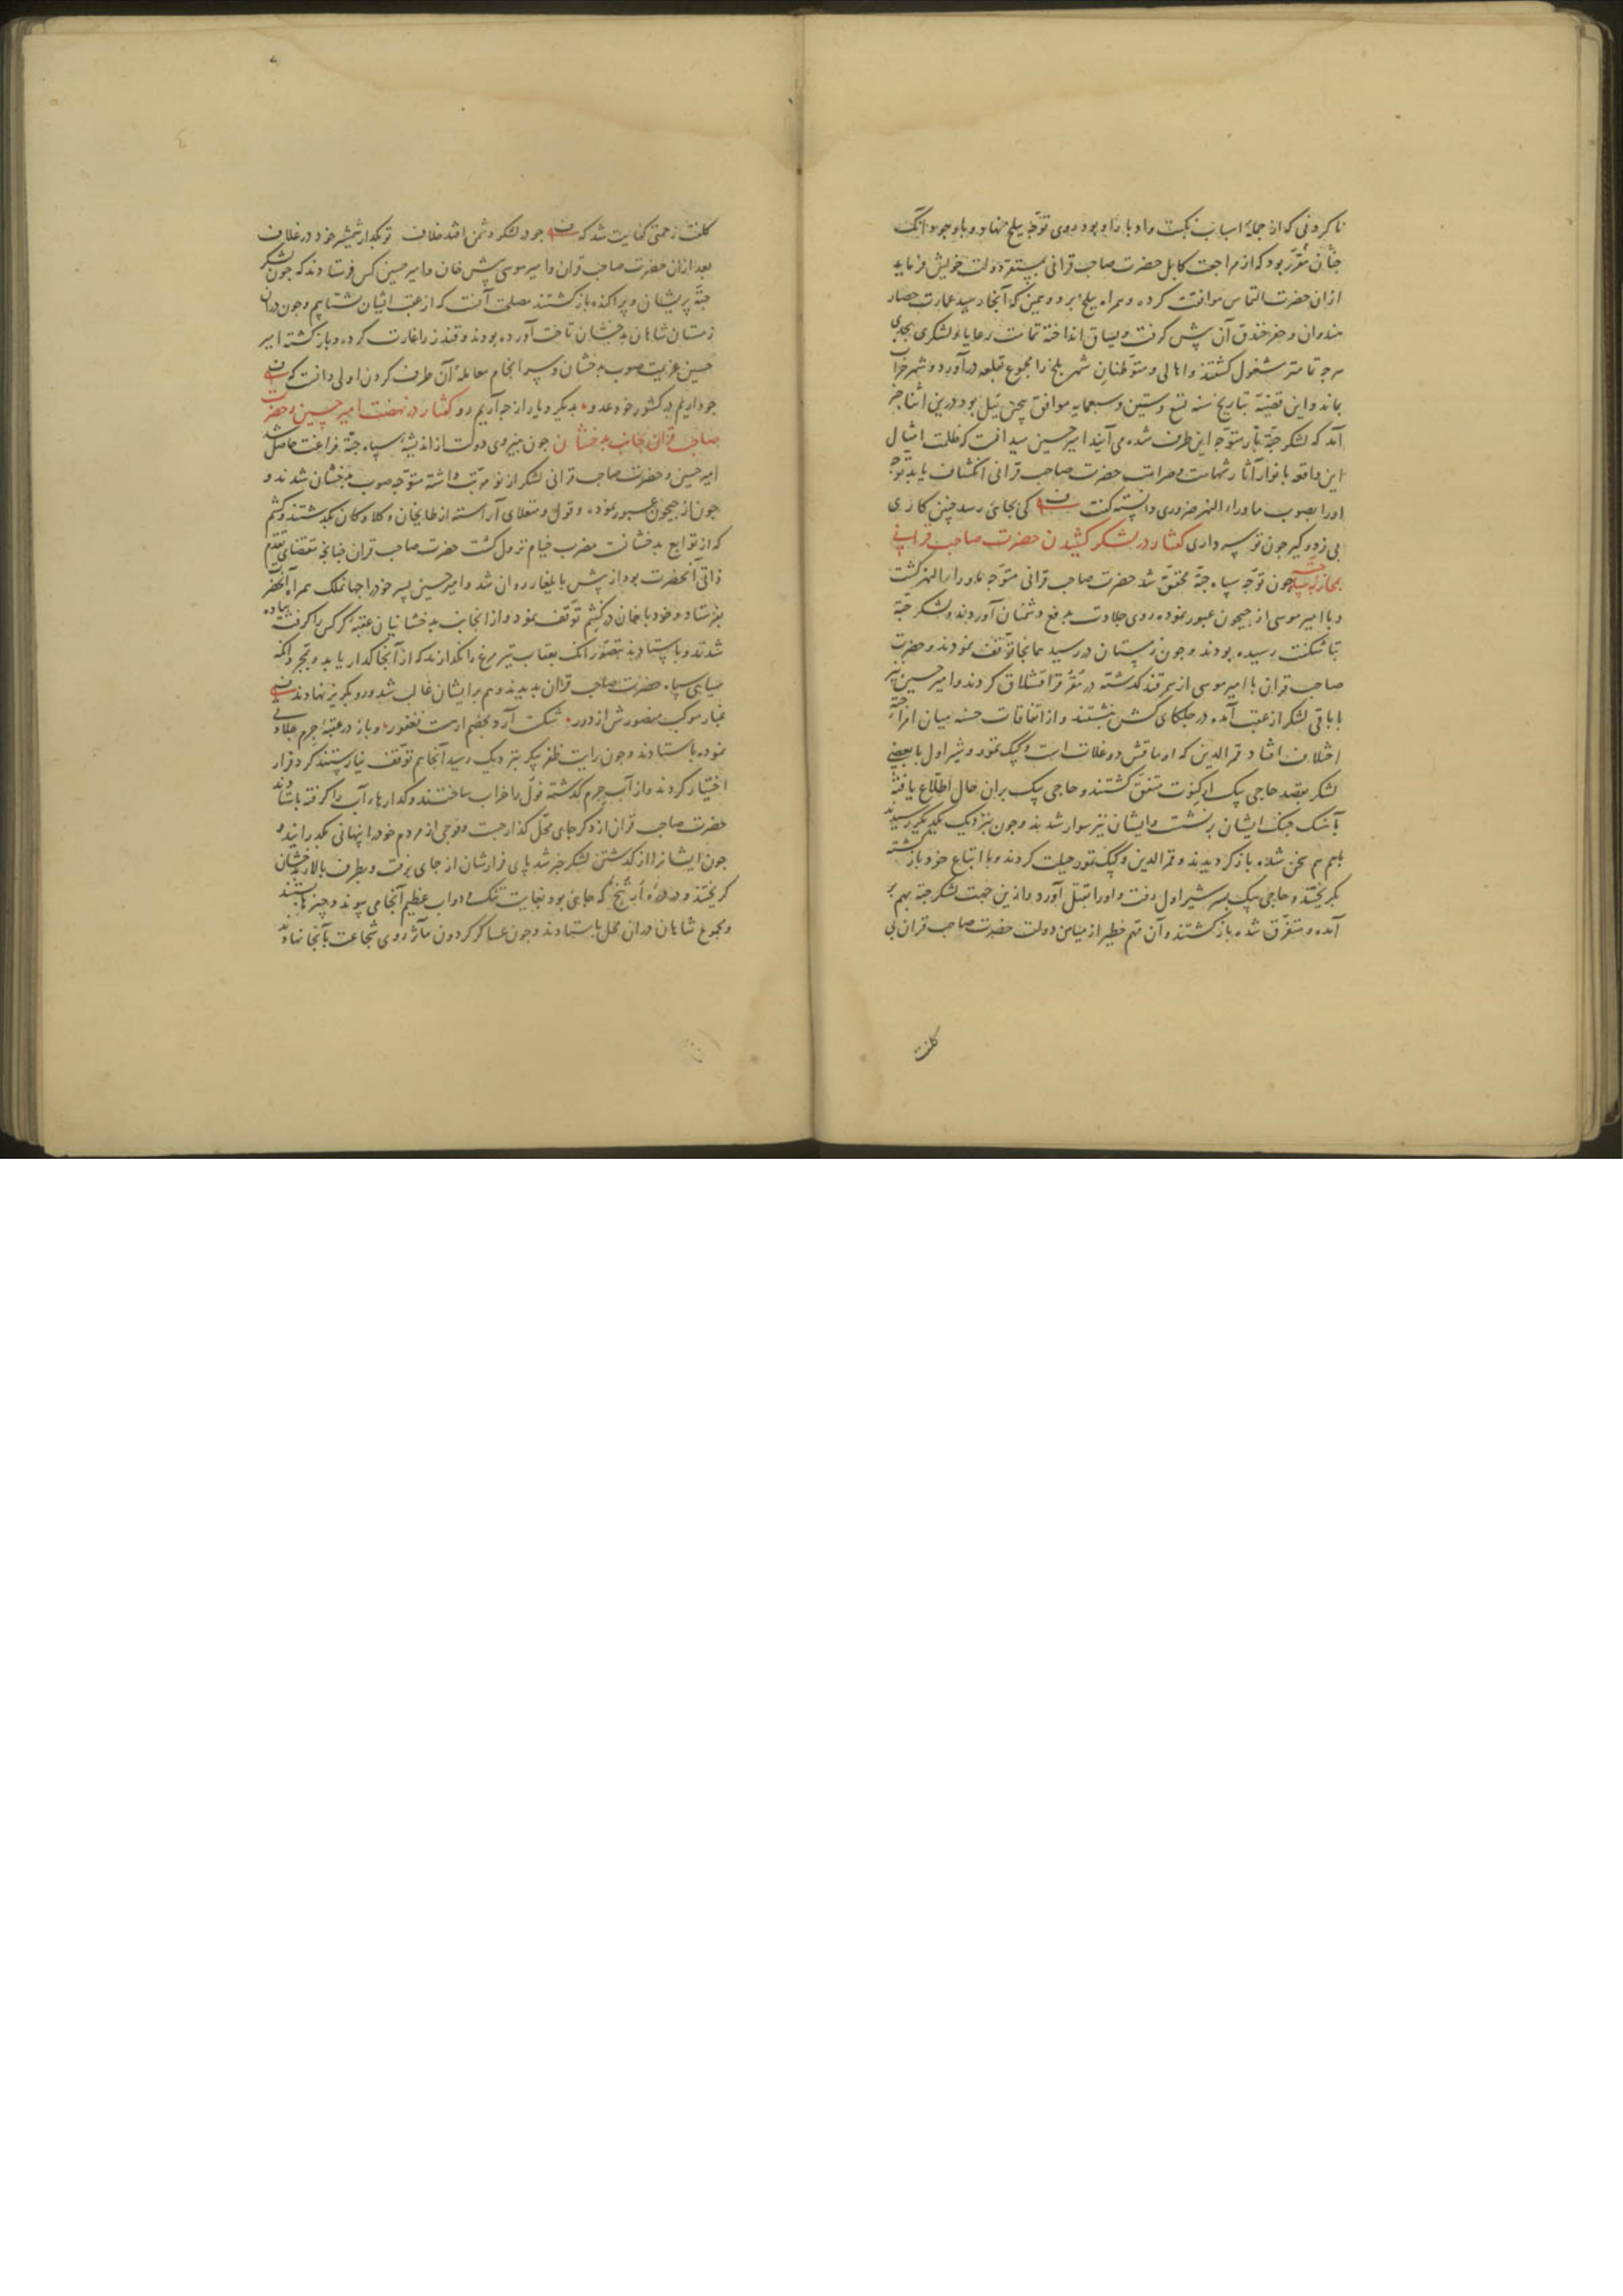 ناکردنی که از جملهٔ اسباب نکبت و ادبار او بود روی توجه ببلخ نهاد و باوجود آنک
چنان مقرر بود که از مراجعت کابل حضرت صاحب قرانی بمستقر دولت خویش فرماید
ازان حضرت التماس موافقت کرده و همراه ببلخ برد و همین که آنجا رسید عمارت حصار
هندوان و حفر خندق آن پیش کرفت و یساق انداخته تمامت رعایا و لشکری بجدی
هرچه تمامتر مشغول کشتند و اهالی و متوطنان شهر بلخ را مجموع بقلعه درآورد و شهر خراب
بماند و این قضیه بتاریخ سنه تسع و ستین و سبعمایه موافق پیچین ییل بود درین اثنا خبر
آمد که لشکر جته باز متوجه این طرف شده می آیند امیر حسین میدانست که ظلمت امثال
این واقعه بانوار آثار شهامت و صرامت حضرت صاحب قرانی انکشاف یابد توجه
اورا بصوب ماوراء النهر ضروری دانسته کفت کی بجائی رسد چنین کاری
بی زد و کیر چون تو سرداری کفتار در لشکر کشیدن حضرت صاحب قرانی
بمحاربه سپاه جته چون توجه سپاه جته محقق شد حضرت صاحب قرانی متوجه ماوراء النهر کشت
و با امیر موسی از جیحون عبور نموده روی جلادت بدفع دشمنان آوردند و لشکر جته
تا شکنت رسیده بودند و چون زمستان دررسید همانجا توقف نمودند و حضرت
صاحب قران با امیر موسی از سمرقند کذشته در مقر قراقشلاق کردند و امیر حسین نیز
با باقی لشکر از عقب آمده در جلکای کش بنشستند و از اتفاقات حسنه میان امراء جته
اختلاف افتاد قمر الدین که اوماقش دوغلات است و کپک تمور و شیراول با بعضی
لشکر بقصد حاجی بیک ارکنوت متفق کشتند و حاجی بیک بران حال اطلاع یافته
بآهنک جنک ایشان برنشست و ایشان نیز سوار شدند و چون بنزدیک یکدیکر رسیدند
بهم هم سخن شده باز کردیدند و قمر الدین و کپک تمور حیلت کردند و با اتباع خود بازکشته
بکریختند و حاجی بیک بسر شیراول رفت و اورا بقتل آورد و ازین جهت لشکر جته بهم بر
آمده و متفرق شده باز کشتند و آن مهم خطیر از میامن دولت حضرت صاحب قران بی
کلفت
کلفت زحمتی کفایت شد که چو در لشکر دشمن افتد خلاف تو بکذار شمشیر خود در غلاف
بعد ازان حضرت صاحب قران و امیر موسی پیش خان و امیر حسین کس فرستادند که چون لشکر
جته پریشان و پراکنده باز کشتند مصلحت آنست که از عقب ایشان بشتابیم و چون دران
زمستان شاهان بدخشان تاخت آورده بودند و قندز را غارت کرده و باز کشته امیر
حسین عزیمت صوب بدخشان و سرانجام معاملهٔ آن طرف کردن اولی دانست که
چو داریم در کشور خود عدو بدیکر دیار از چه آریم رو کفتار در نهضت امیر حسین و حضرت
صاحب قران بجانب بدخشان چون بنیروی دولت از اندیشهٔ سپاه جته فراغت حاصل شد
امیر حسین و حضرت صاحب قرانی لشکر از نو مرتب داشته متوجه صوب بدخشان شدند و
چون از جیحون عبور نموده و قول و منقلای آراسته از طایخان و کلاوکان بکذشتند و کشم
که از توابع بدخشانست مضرب خیام نزول کشت حضرت صاحب قران چنانچه مقتضای تقدم
ذاتی آنحضرت بود از پیش بایلغار روان شد و امیر حسین پسر خود را جهانملک همراه آنحضرت
بفرستاد و خود با خان در کشم توقف نمود و از انجانب بدخشانیان عقبهٔ کرکس را کرفته پیاده
شدند و باستادند بتصور آنک بعقاب تیر مرغ را نکذارند که از آنجا کذار یابد و بمجرد آنکه
سیاهی سپاه حضرت صاحب قران بدیدند وهم بر ایشان غالب شد و رو بکریز نهادند
غبار موکب منصورش از دور شکست آرد بخصم ار هست فغفور و باز در عقبهٔ جرم جلادتی
نموده باستادند و چون رایت ظفر پیکر بنزدیک رسید آنجا هم توقف نیارستند کرد فرار
اختیار کردند و از آب جرم کذشته قول را خراب ساختند و کذارهاء آب را کرفته باستادند
حضرت صاحب قران از دکر جای محل کذار جست و فوجی از مردم خود را پنهانی بکذرانید و
چون ایشانرا از کذشتن لشکر خبر شد پای قرارشان از جای برفت و بطرف بالا بدخشان
کریختند و در درهٔ ارتنج که جائی بود بغایت تنک و دو آب عظیم آنجا می پیوندد و چپر ها بستند
و مجموع شاهان دران محل باستادند و چون عساکر کردون مآثر روی شجاعت بآنجا نهادند